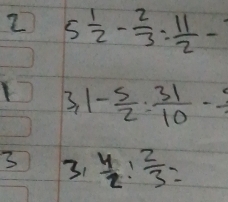 2 5 1/2 - 2/3 = 11/2 -
1 3,1 - 5/2 = 31/10 -
3 3, 4/2 : 2/3 =